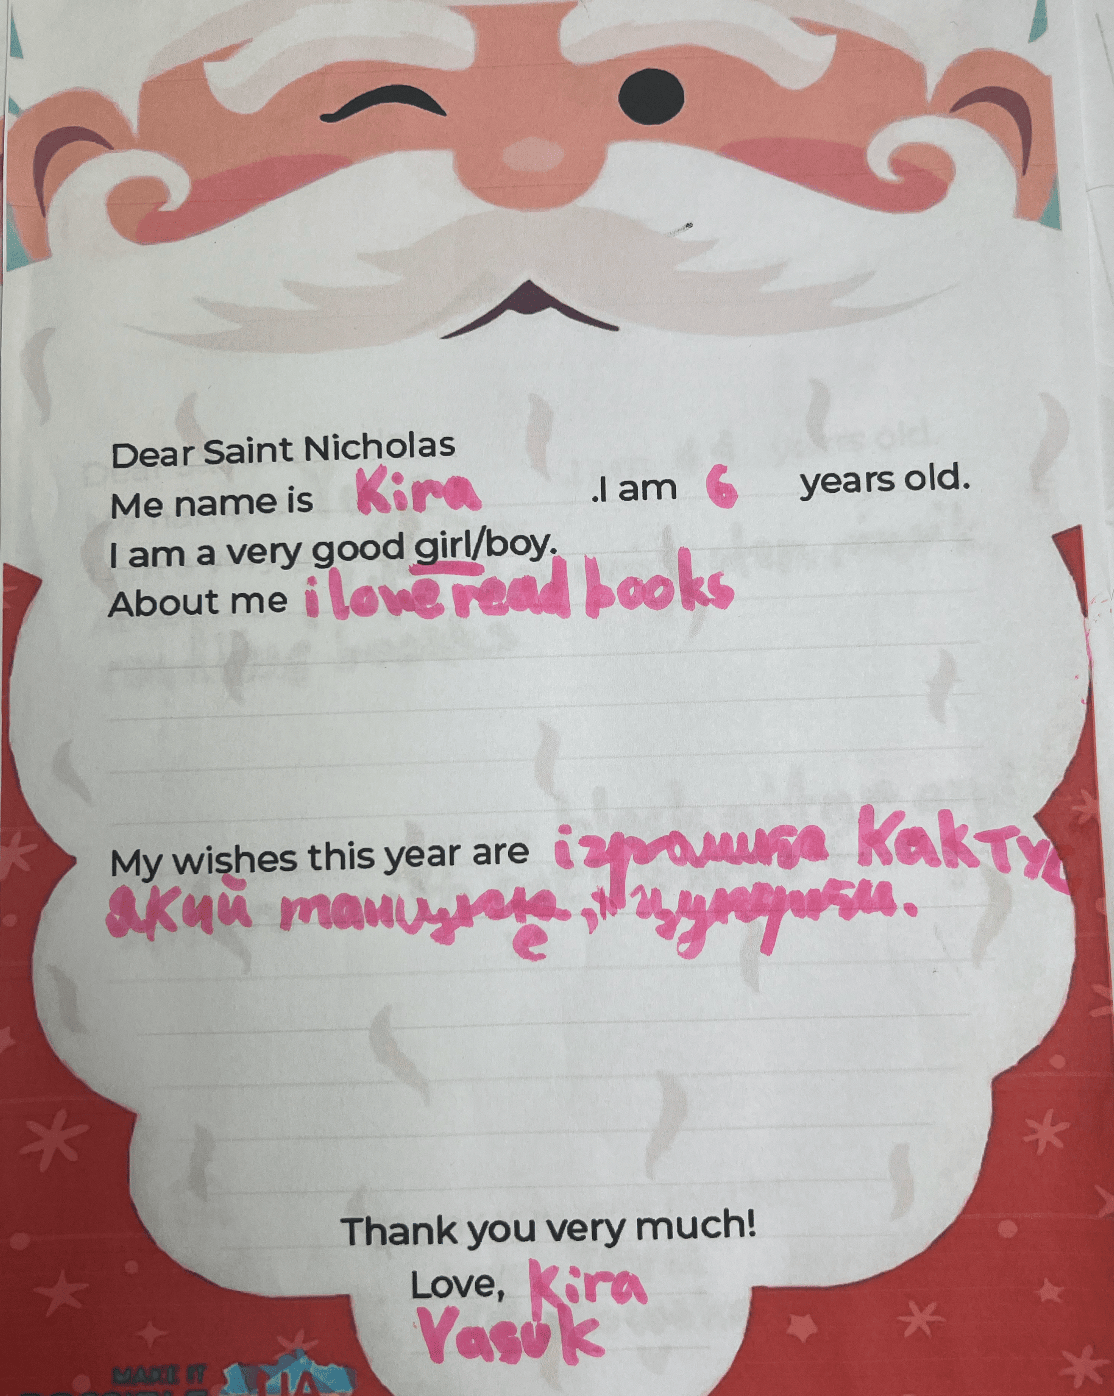 Dear Saint Nicholas
Me name is Kira .I am 6 years old.
I am a very good girl/boy.
About me i love read books
My wishes this year are іграшка Кактус
який танцует,
Thank you very much!
Love, Kira
Vasuk
MAKE IT